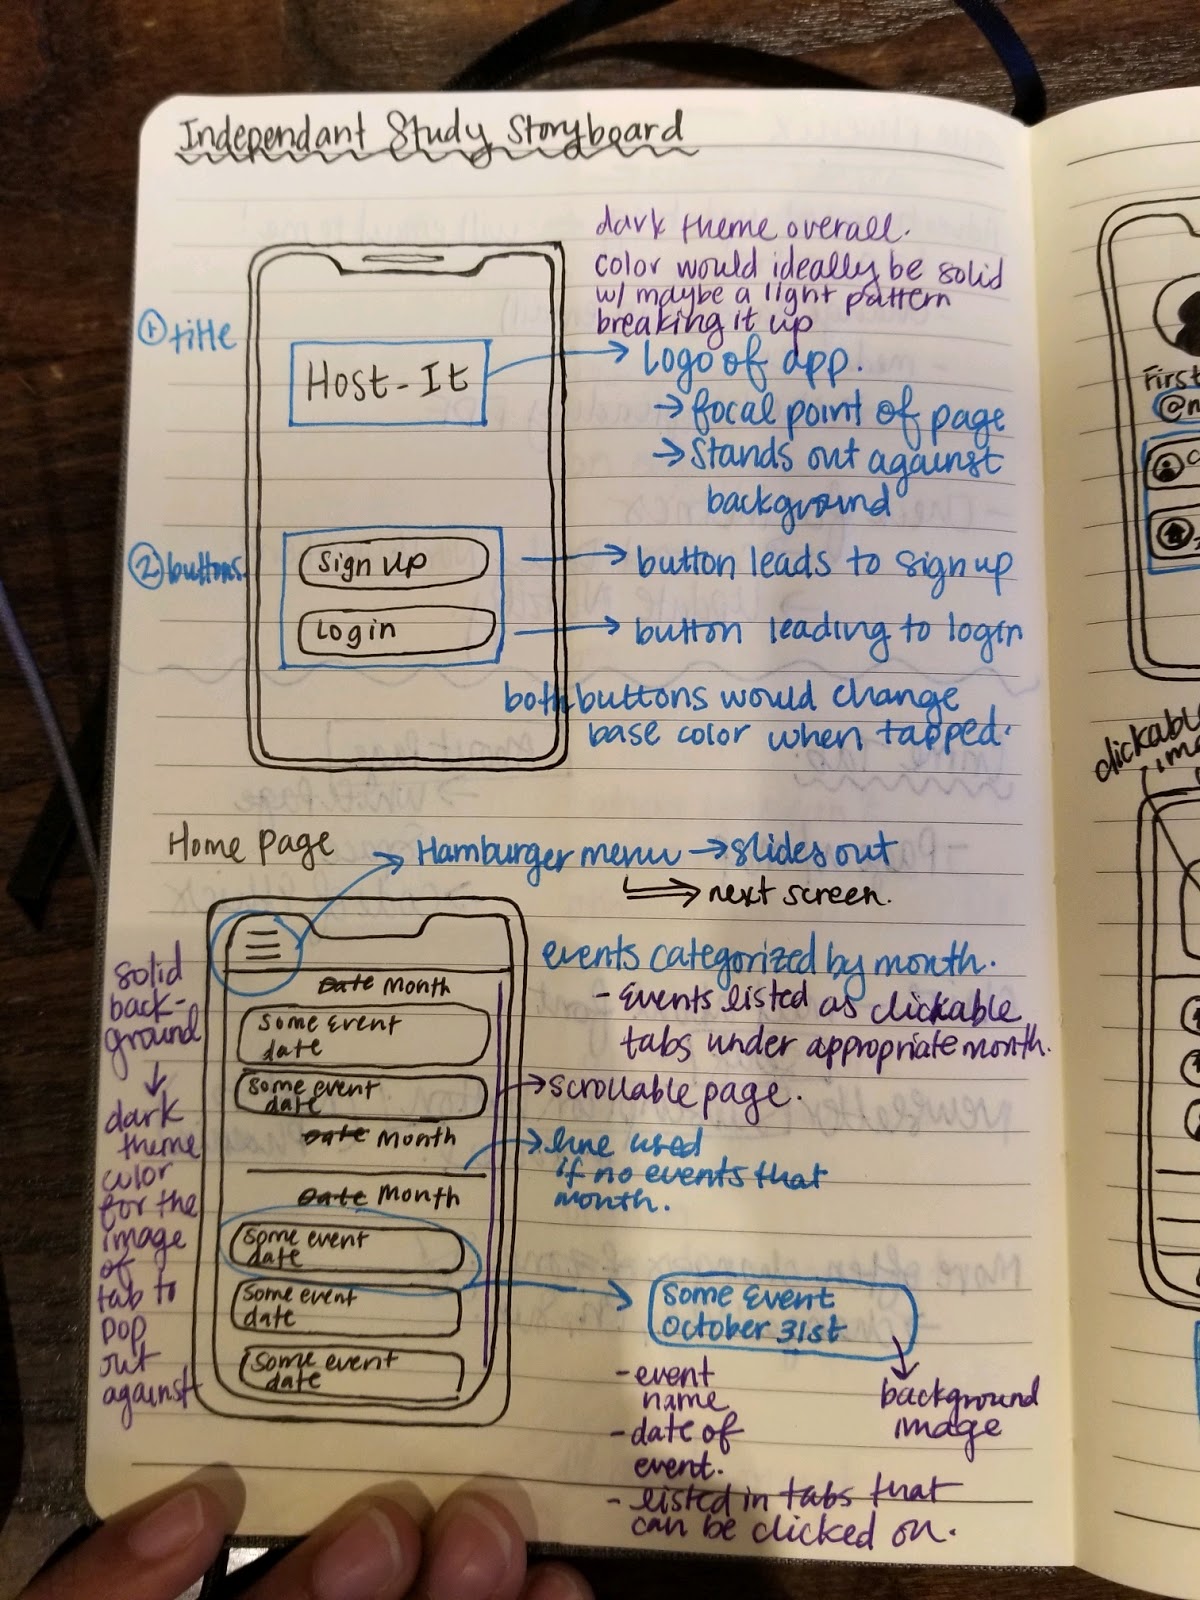 Independant Study Storyboard
dark theme overall.
color would ideally be solid
w/ maybe a light pattern
breaking it up
① title
Host-It
→ Logo of app.
→ focal point of page
→ Stands out against
background
② buttons
Sign up
→ button leads to sign up
Login
→ button leading to login
both buttons would change
base color when tapped.
Home Page
→ Hamburger menu → slides out
→ next screen.
solid
back-
ground
↓
dark
theme
color
for the
image
of
tab to
pop
out
against
Date Month
some event
date
some event
date
Date Month
Date Month
some event
date
some event
date
some event
date
events categorized by month.
- Events listed as clickable
tabs under appropriate month.
→ scrollable page.
→ line used
if no events that
month.
Some Event
October 31st
- event
name
- date of
event.
- listed in tabs that
can be clicked on.
background
image
First
@n
clickable